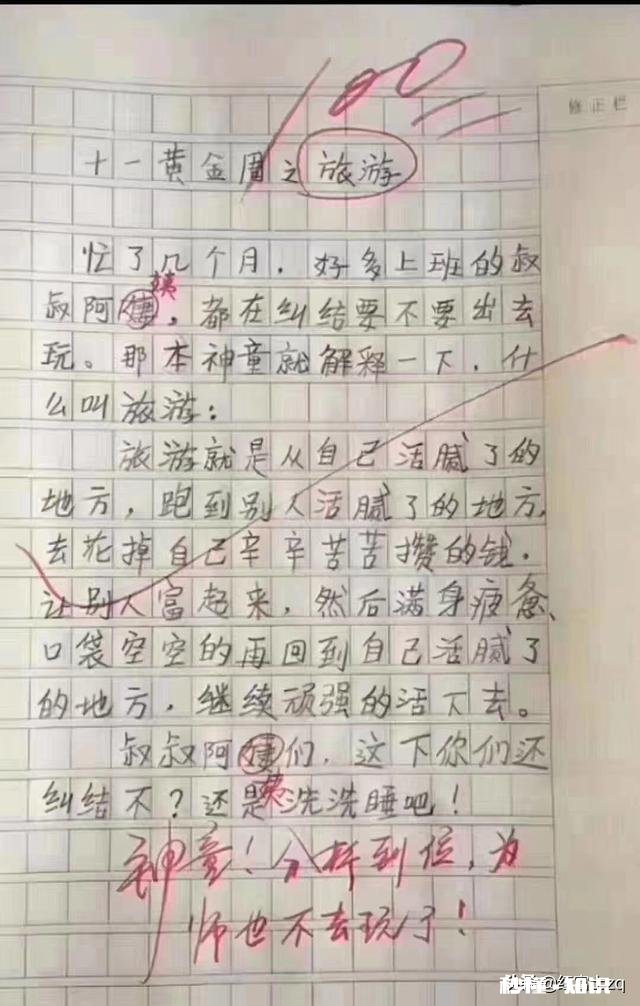 100
修正栏
十一黄金周之旅游
忙了几个月，好多上班的叔
姨
叔阿，都在纠结要不要出去
玩。那本神童就解释一下，什
么叫旅游：
旅游就是从自己活腻了的
地方，跑到别人活腻了的地方，
去花掉自己辛辛苦苦攒的钱，
让别人富起来，然后满身疲惫、
口袋空空的再回到自己活腻了
的地方，继续顽强的活下去。
叔叔阿们，这下你们还
姨
纠结不？还是洗洗睡吧！
神童！分析到位，为
师也不去玩了！